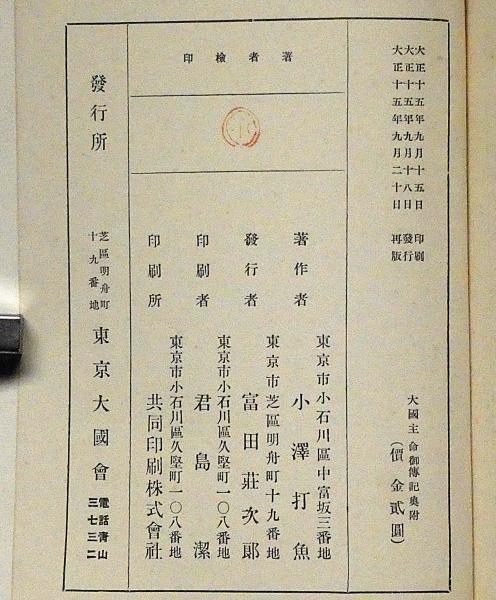 大正十五年九月十五日 印刷
大正十五年九月十八日 發行
大正十五年九月二十日 再版
大國主命御傳記奧附
(價金貳圓)
著者檢印
著作者
東京市小石川區中富坂三番地
小澤打魚
發行者
東京市芝區明舟町十九番地
富田莊次郎
印刷者
東京市小石川區久堅町一〇八番地
君島潔
印刷所
東京市小石川區久堅町一〇八番地
共同印刷株式會社
發行所
芝區明舟町
十九番地
東京大國會
電話青山
三七三二